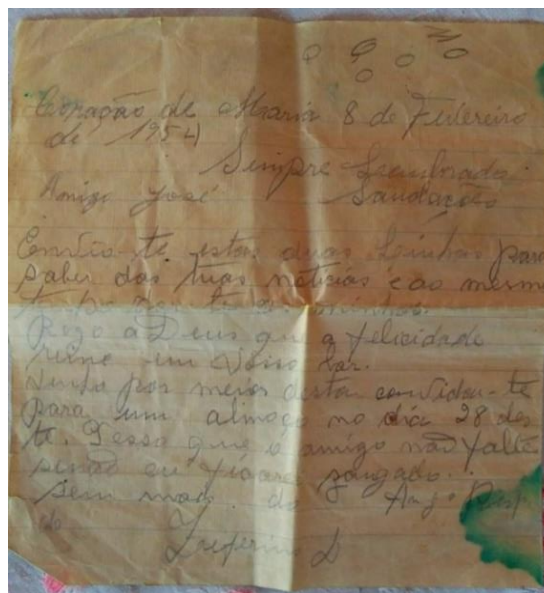 Coração de Maria 8 de Fulereiro
de 1954
Sempre Lembrado
Amigo José Saudações
Envio-te estas duas Linhas para
saber das tuas noticias e ao mesmo
tempo
Rogo a Deus que a felicidade
reine em Vosso Lar.
Venho por meios desta convidar-te
para um almoço no dia 28 des
te. Pesso que o amigo não falte
senão eu ficarei zangado.
Sem mais do Amgº
do
Zeferino D